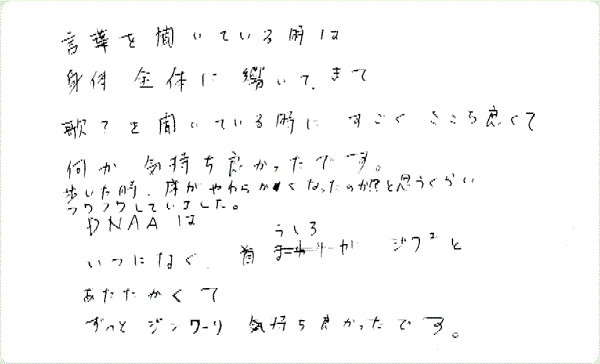 言葉を聞いている時は
身体全体に響いて、きて
歌を聞いている時に すごく ここち良くて
何か 気持ち良かったです。
歩いた時、床がやわらかくなったのか!?と思うぐらい
フワフワしていました。
DNAAは うしろ
いつになく、首 が ジワーと
あたたかくて
ずっと ジンワーリ 気持ち良かったです。